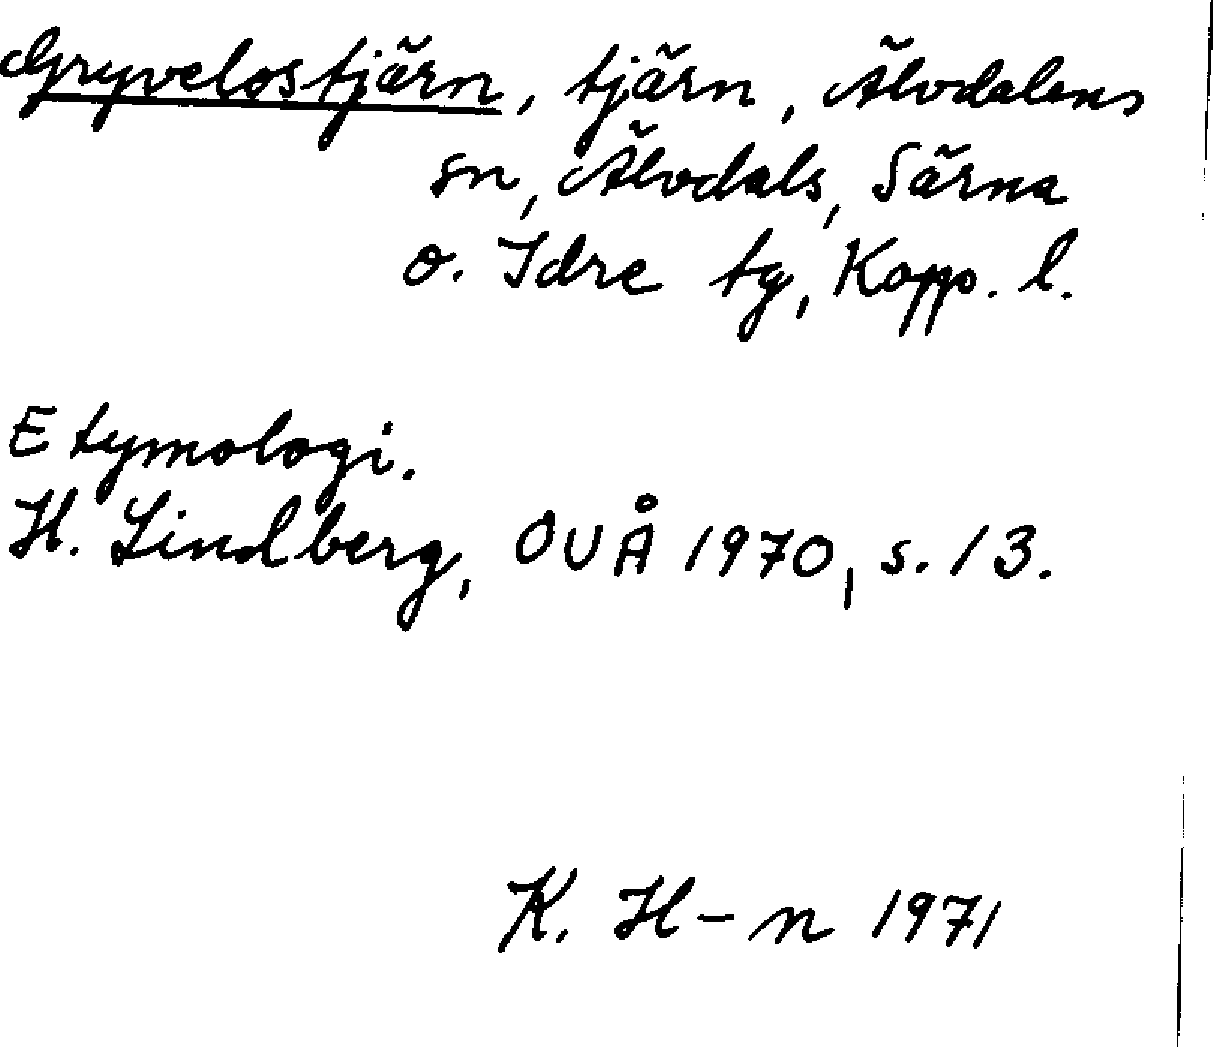 Gryvelostjärn, tjärn, Älvdalens
sn, Älvdals, Särna
o. Idre tg, Kopp. l.
Etymologi.
H. Lindberg, OUÅ 1970, s. 13.
K. H-n 1971